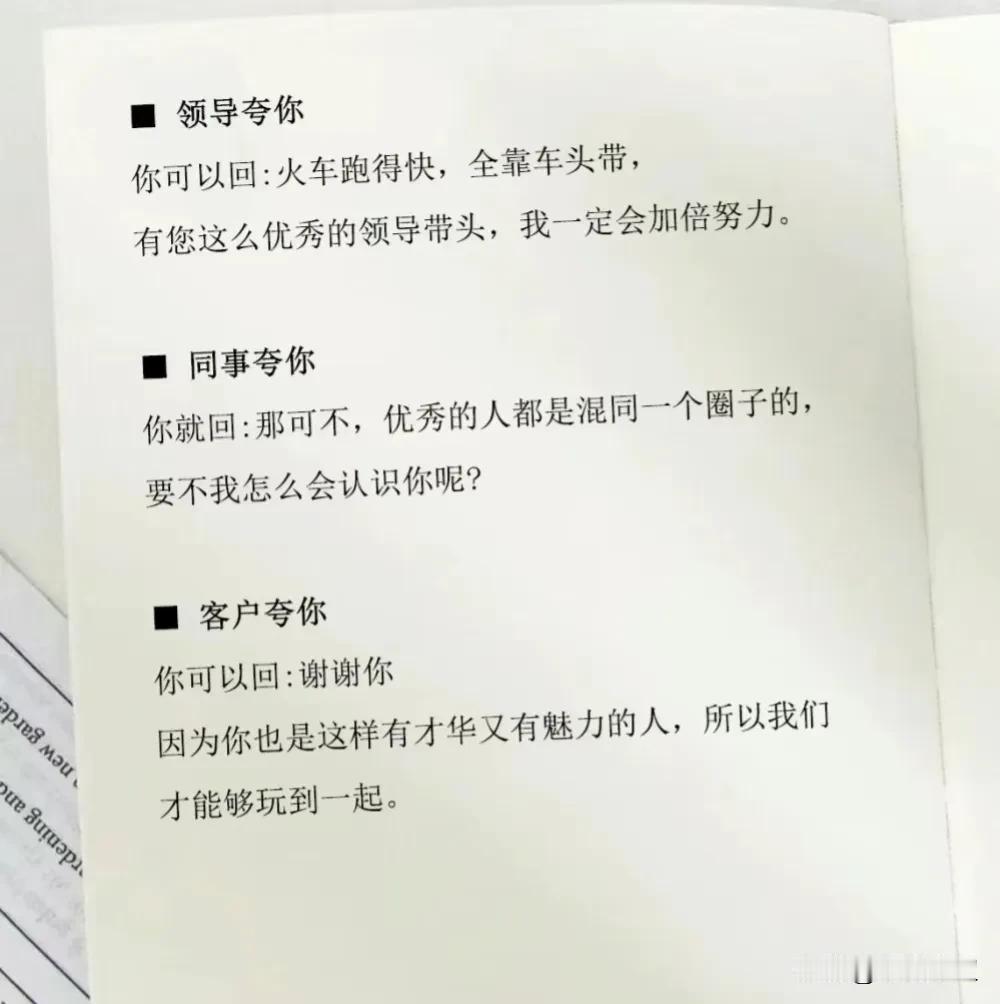 ■ 领导夸你
你可以回:火车跑得快，全靠车头带，
有您这么优秀的领导带头，我一定会加倍努力。
■ 同事夸你
你就回:那可不，优秀的人都是混同一个圈子的，
要不我怎么会认识你呢?
■ 客户夸你
你可以回:谢谢你
因为你也是这样有才华又有魅力的人，所以我们
才能够玩到一起。
new garden
rdening and